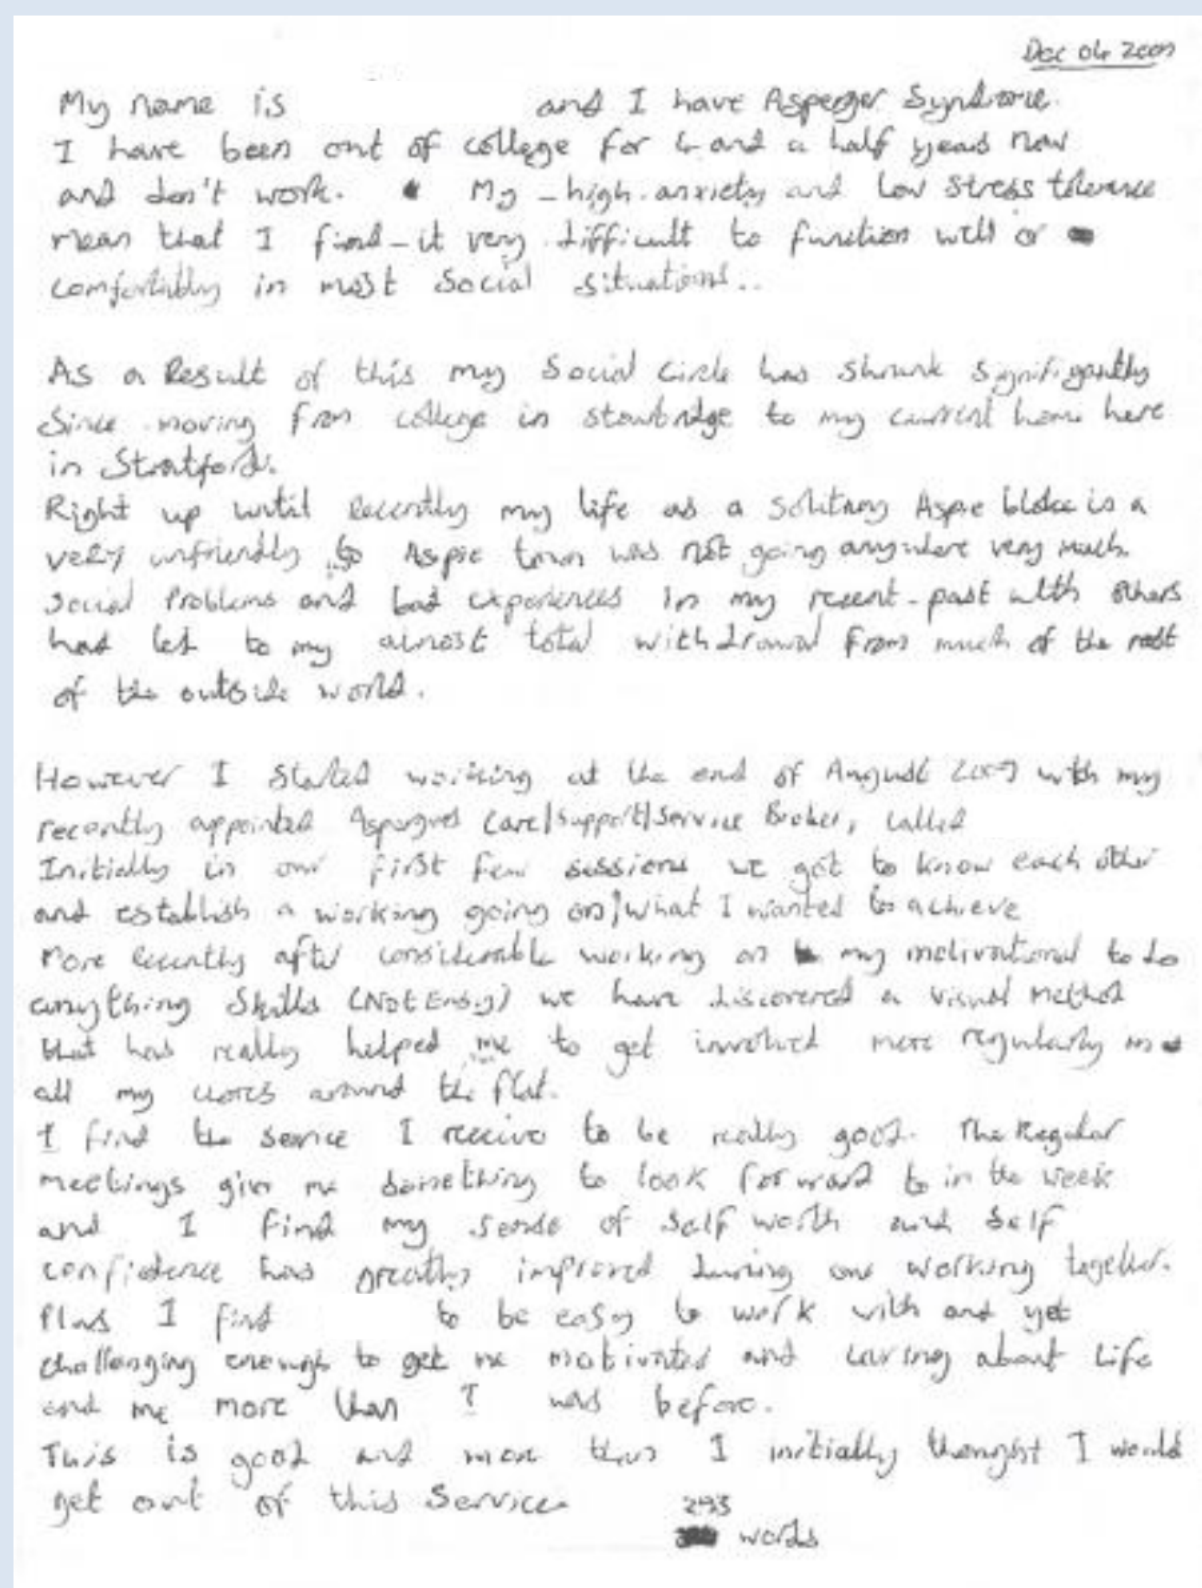 Dec 04 2007
My name is and I have Asperger Syndrome.
I have been out of college for 4 and a half years now
and don't work. My - high. anxiety and Low Stress tolerance
mean that I find - it very difficult to function well or
comfortably in most Social situations..
As a Result of this my Social Circle has shrunk significantly
Since moving from college in Stourbridge to my current home here
in Stratford.
Right up until Recently my life as a Solitary Aspie bloke is a
very unfriendly to Aspie town was not going anywhere very much.
Social Problems and bad experiences in my recent - past with others
had led to my almost total withdrawal from much of the rest
of the outside world.
However I started working at the end of August 2007 with my
recently appointed Care/Support/Service Broker, called
Initially in our first few sessions we got to know each other
and establish a working going on/what I wanted to achieve
More Recently after considerable working on my motivational to do
anything Skills (Not Easy) we have discovered a visual method
that has really helped me to get involved more regularly in
all my chores around the flat.
I find the service I receive to be really good. The Regular
meetings give me something to look forward to in the week
and I find my sense of Self worth and Self
confidence has greatly improved during our working together.
Plus I find to be easy to work with and yet
challenging enough to get me motivated and caring about Life
and me more than I was before.
This is good and more than I initially thought I would
get out of this Service.
293
words